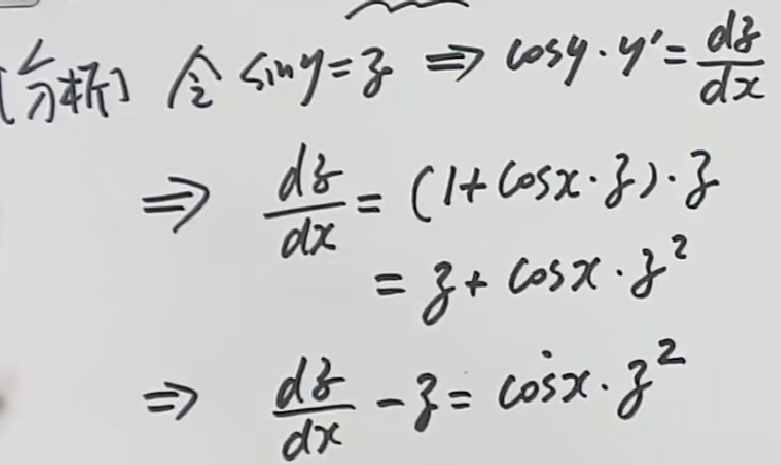 [分析] 令 siny=z ⇒ cosy·y'=dz/dx
⇒ dz/dx = (1+cosx·z)·z
= z+cosx·z²
⇒ dz/dx - z = cosx·z²